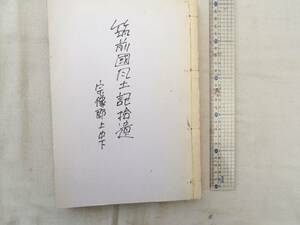 筑前國風土記拾遺
宗像郡上中下